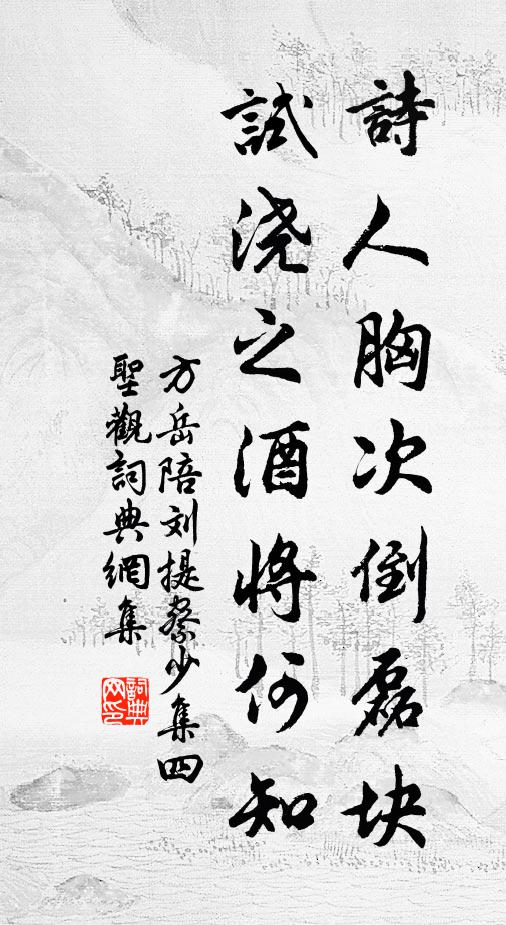 詩人胸次倒磊块
試浇之酒將何知
方岳陪刘提察少集四
聖觀詞典網集
詞典网印